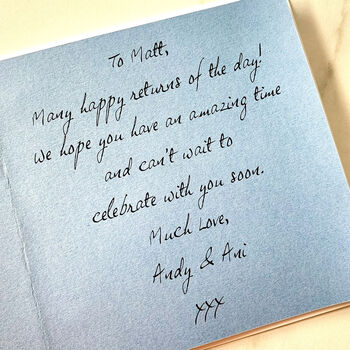 To Matt,
Many happy returns of the day!
We hope you have an amazing time
and can't wait to
celebrate with you soon.
Much Love,
Andy & Ani
xxx